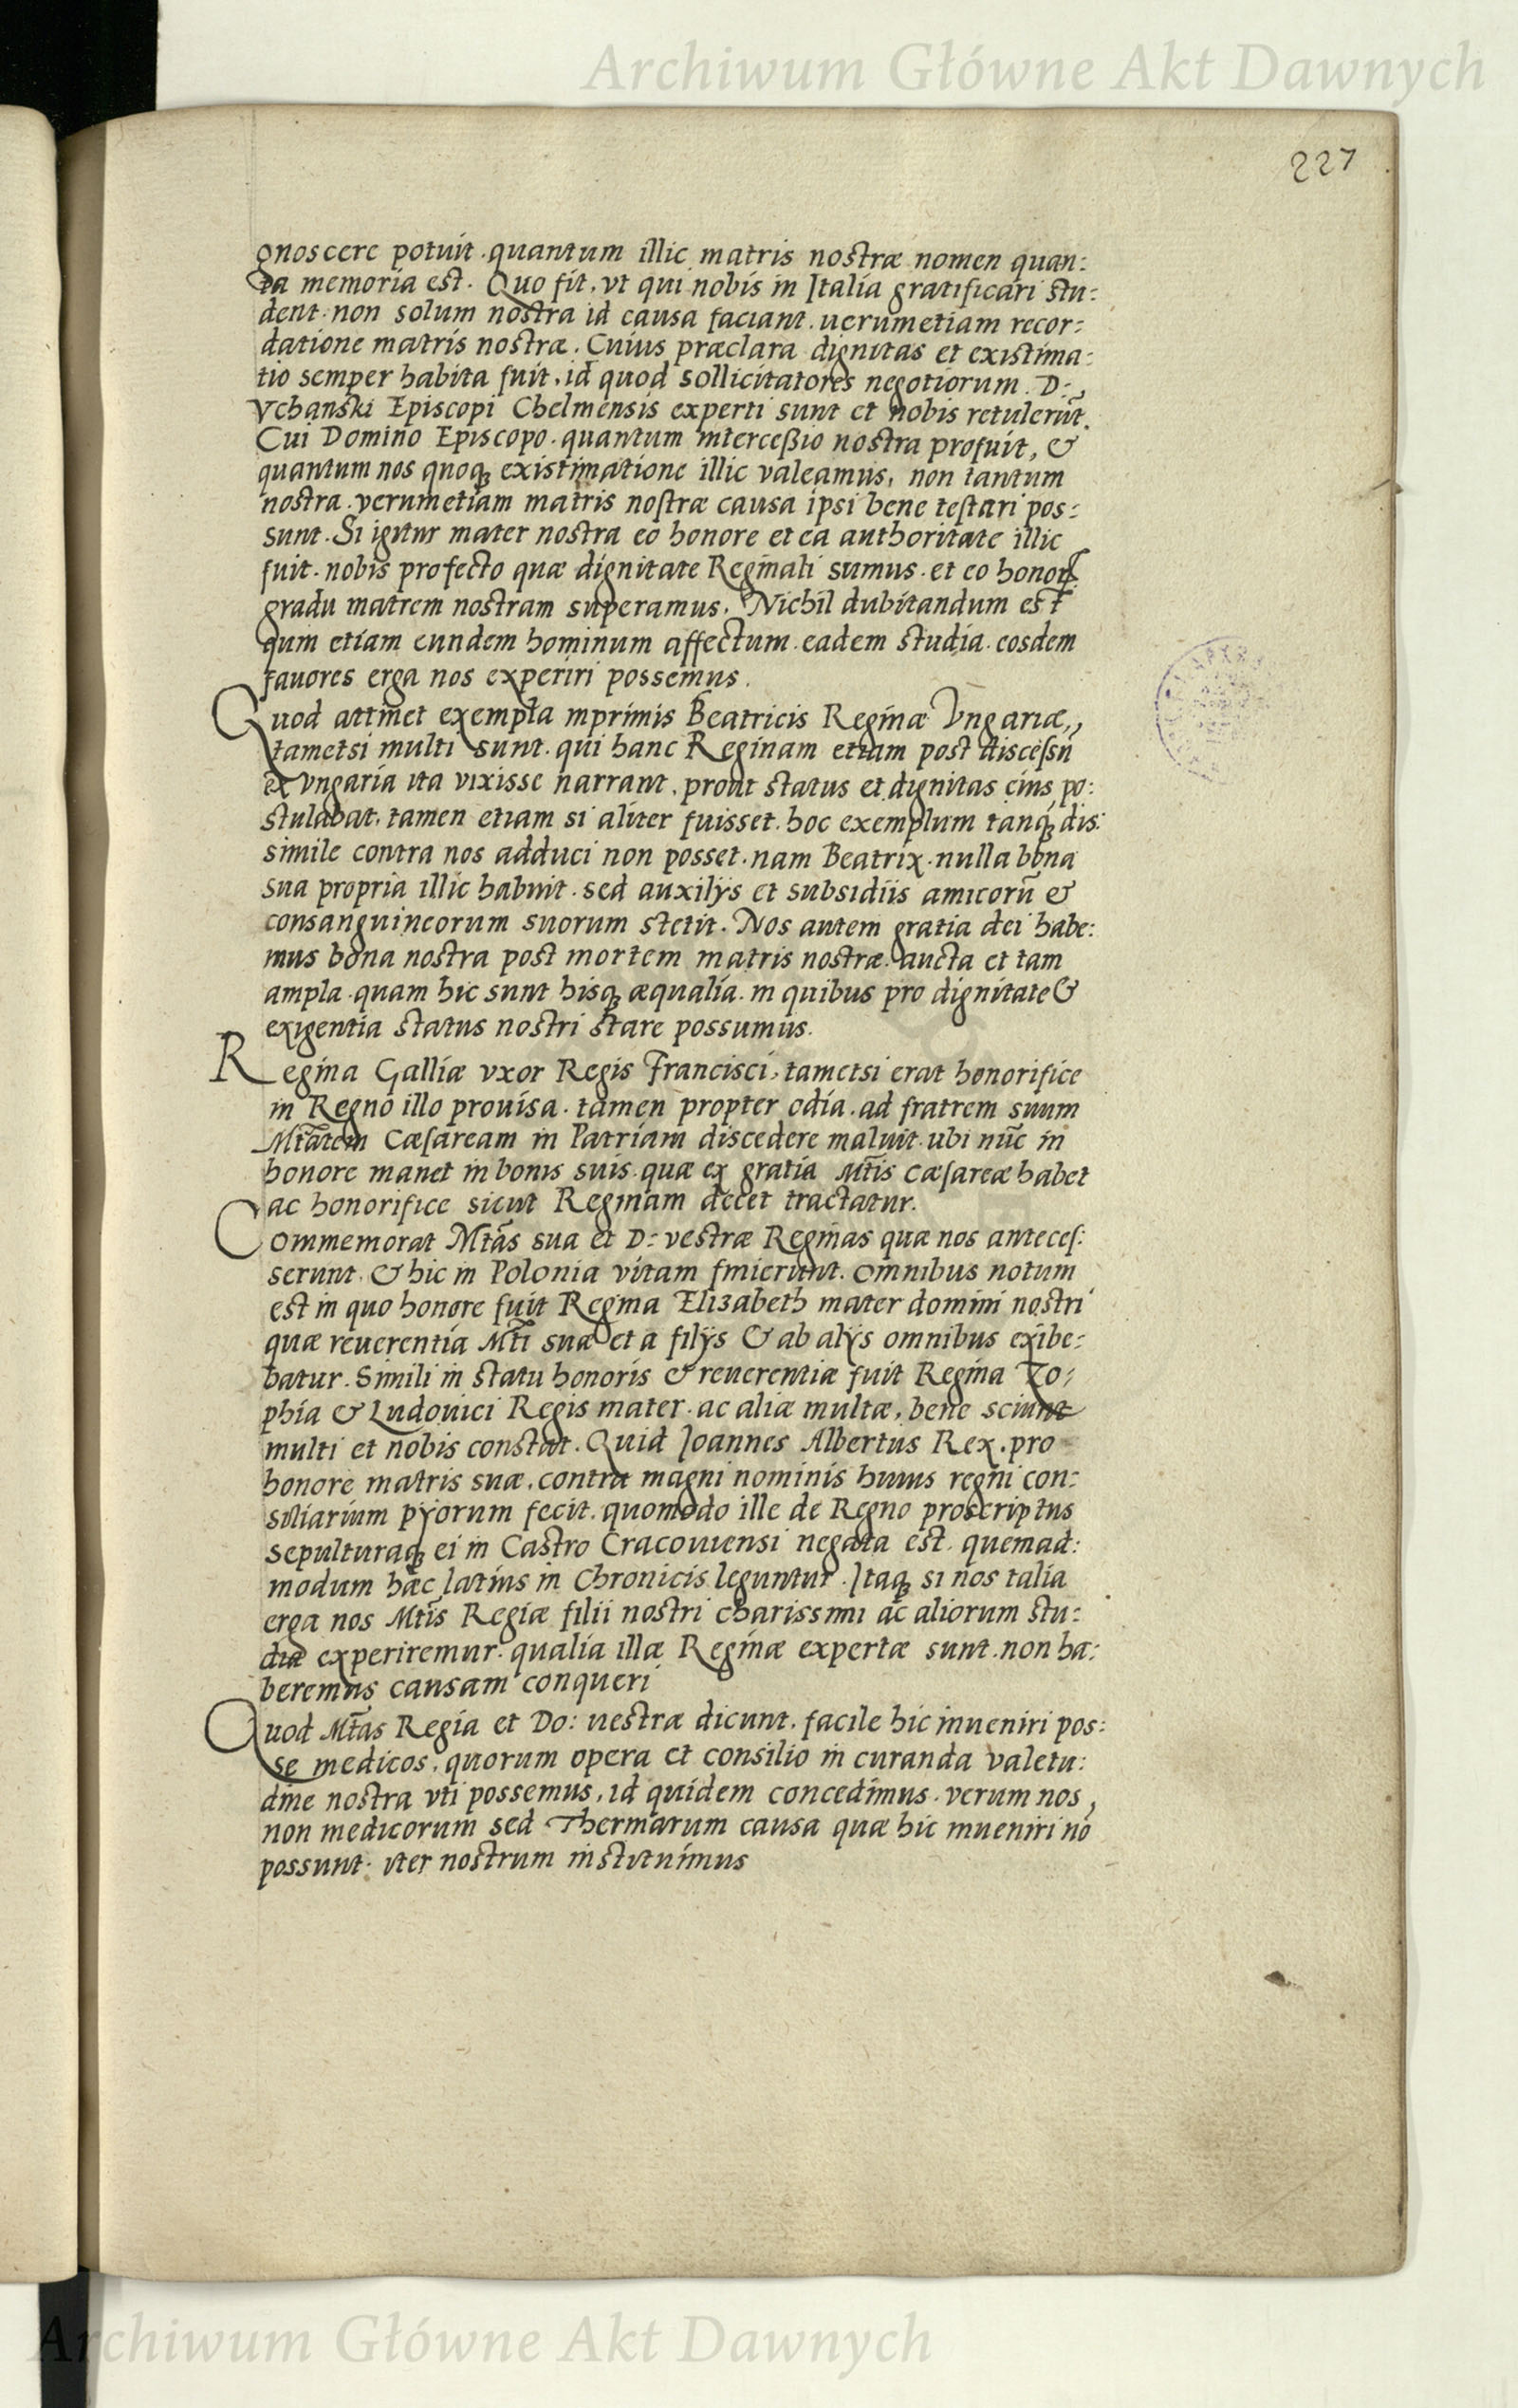 Archiwum Główne Akt Dawnych
227
gnoscere potuit. quantum illic matris nostræ nomen quan:
ta memoria est. Quo fit, vt qui nobis in Italia gratificari stu:
dent. non solum nostra id causa faciant. uerumetiam recor:
datione matris nostræ. Cuius præclara dignitas et existima:
tio semper habita fuit, id quod sollicitatores negotiorum D:
Vchanski Episcopi Chelmensis experti sunt et nobis retulerūt.
Cui Domino Episcopo. quantum interceßio nostra profuit, &
quantum nos quoqꝫ existimatione illic valeamus, non tantum
nostra. verumetiam matris nostræ causa ipsi bene testari pos:
sunt. Si igitur mater nostra eo honore et ea authoritate illic
fuit. nobis profecto quæ dignitate Reginali sumus. et eo honoꝝ
gradu matrem nostram superamus. Nichil dubitandum est
quin etiam eundem hominum affectum. eadem studia. eosdem
fauores erga nos experiri possemus.
Quod attinet exempla inprimis Beatricis Reginæ Vngariæ,
tametsi multi sunt. qui hanc Reginam etiam post discessū
ex Vngaria ita vixisse narrant. prout status et dignitas eius po:
stulabat, tamen etiam si aliter fuisset. hoc exemplum tanqꝫ dis:
simile contra nos adduci non posset. nam Beatrix. nulla bona
sua propria illic habuit. sed auxilijs et subsidiis amicorū &
consanguineorum suorum stetit. Nos autem gratia dei habe:
mus bona nostra post mortem matris nostræ. aucta et tam
ampla. quam hic sunt hisqꝫ æqualia. in quibus pro dignitate &
exigentia status nostri stare possumus.
Regina Galliæ vxor Regis Francisci, tametsi erat honorifice
in Regno illo prouisa. tamen propter odia. ad fratrem suum
Mtātem Cæsaream in Patriam discedere maluit. ubi nūc in
honore manet in bonis suis. quæ ex gratia Mtīs Cæsareæ habet
ac honorifice sicut Reginam decet tractatur.
Commemorat Mtās sua et D: vestræ Reginas quæ nos anteces:
serunt. & hic in Polonia vitam finierunt. omnibus notum
est in quo honore fuit Regina Elizabeth mater domini nostri
quæ reuerentia Mtī suæ et a filijs & ab alijs omnibus exibe:
batur. Simili in statu honoris & reuerentiæ fuit Regina Zo:
phia & Ludouici Regis mater. ac aliæ multæ, bene sciunt
multi et nobis constat. Quid Ioannes Albertus Rex. pro
honore matris suæ. contra magni nominis huius regni con:
siliarium pyorum fecit. quomodo ille de Regno proscriptus
sepulturaqꝫ ei in Castro Cracouiensi negata est. quemad:
modum hæc latius in Chronicis leguntur. Itaqꝫ si nos talia
erga nos Mtīs Regiæ filii nostri charissimi ac aliorum stu:
dia experiremur. qualia illæ Reginæ expertæ sunt. non ha:
beremus causam conqueri
Quod Mtās Regia et Do: uestræ dicunt. facile hic inueniri pos:
se medicos, quorum opera et consilio in curanda valetu:
dine nostra vti possemus, id quidem concedimus. verum nos,
non medicorum sed Thermarum causa quæ hic inueniri nō
possunt. iter nostrum instituimus
Archiwum Główne Akt Dawnych